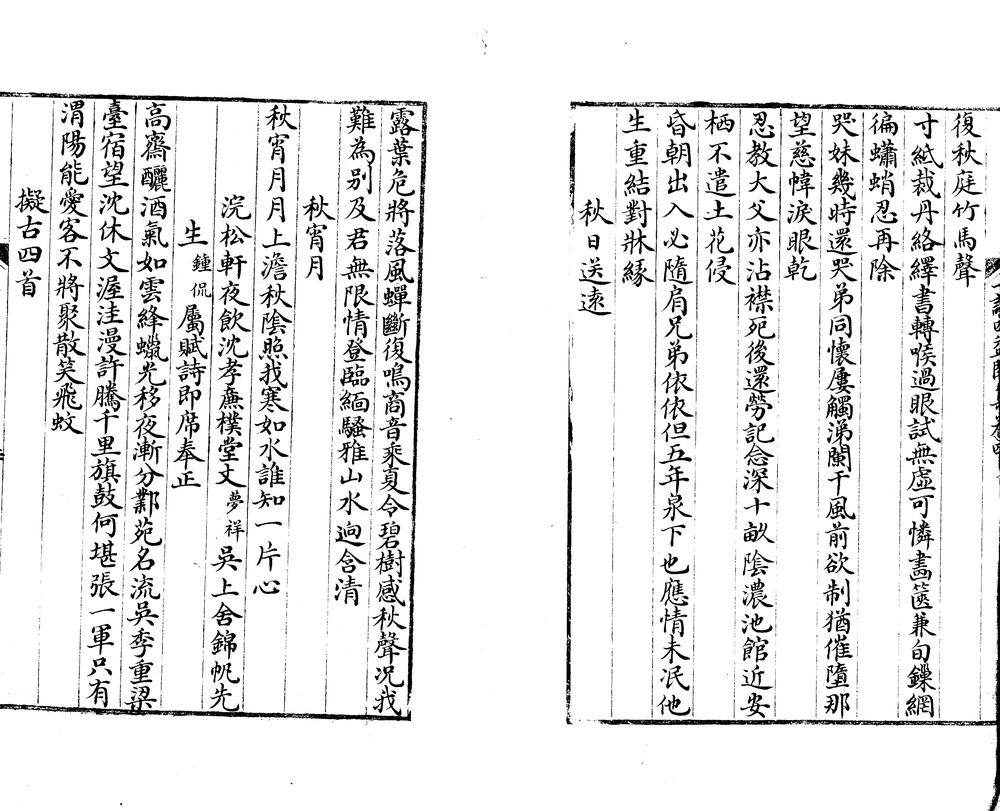 復秋庭竹馬聲
寸紙裁丹絡繹書轉喉過眼試無虛可憐畵篋兼旬鏁網
徧蠨蛸忍再除
哭妹幾時還哭弟同懷屢觸涕闌干風前欲制猶催墮那
望慈幃淚眼乾
忍教大父亦沾襟死後還勞記念深十畝陰濃池館近安
栖不遣土花侵
昏朝出入必隨肩兄弟依依但五年泉下也應情未泯他
生重結對牀緣
秋日送遠
露葉危將落風蟬斷復鳴商音乘夏令碧樹感秋聲况我
難為别及君無限情登臨緬騷雅山水逈含清
秋宵月
秋宵月月上澹秋陰照我寒如水誰知一片心
浣松軒夜飲沈孝廉樸堂丈夢祥吳上舍錦帆先
生鍾侃屬賦詩即席奉正
高齋釃酒氣如雲絳蠟光移夜漸分鄴苑名流吳季重梁
臺宿望沈休文渥洼漫許騰千里旗鼓何堪張一軍只有
渭陽能愛客不將聚散笑飛蚊
擬古四首